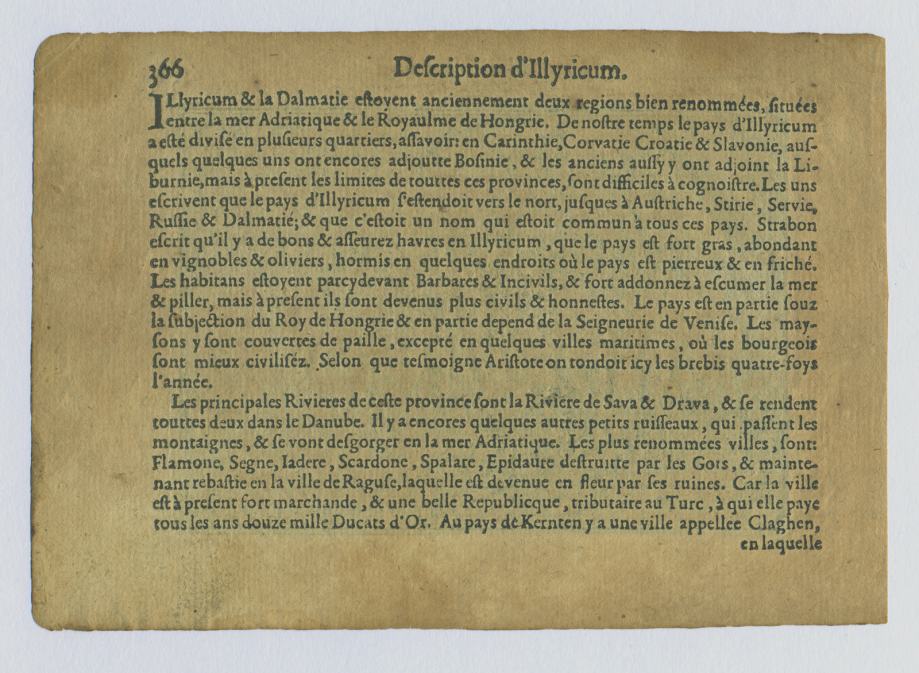 366 Deſcription d'Illyricum.
ILlyricum & la Dalmatie eſtoyent anciennement deux regions bien renommées, ſituées
entre la mer Adriatique & le Royaulme de Hongrie. De noſtre temps le pays d'Illyricum
a eſté diviſé en pluſieurs quartiers, aſſavoir: en Carinthie, Corvatie Croatie & Slavonie, auſ-
quels quelques uns ont encores adjoutte Boſinie, & les anciens auſſy y ont adjoint la Li-
burnie, mais à preſent les limites de touttes ces provinces, ſont difficiles à cognoiſtre. Les uns
eſcrivent que le pays d'Illyricum ſ'eſtendoit vers le nort, juſques à Auſtriche, Stirie, Servie,
Ruſſie & Dalmatié; & que c'eſtoit un nom qui eſtoit commun à tous ces pays. Strabon
eſcrit qu'il y a de bons & aſſeurez havres en Illyricum, que le pays eſt fort gras, abondant
en vignobles & oliviers, hormis en quelques endroits où le pays eſt pierreux & en friché.
Les habitans eſtoyent parcydevant Barbares & Incivils, & fort addonnez à eſcumer la mer
& piller, mais à preſent ils ſont devenus plus civils & honneſtes. Le pays eſt en partie ſouz
la ſubjection du Roy de Hongrie & en partie depend de la Seigneurie de Veniſe. Les may-
ſons y ſont couvertes de paille, excepté en quelques villes maritimes, où les bourgeois
ſont mieux civiliſéz. Selon que teſmoigne Ariſtote on tondoit icy les brebis quatre-foys
l'année.
Les principales Rivieres de ceſte province ſont la Riviere de Sava & Drava, & ſe rendent
touttes deux dans le Danube. Il y a encores quelques autres petits ruiſſeaux, qui paſſent les
montaignes, & ſe vont deſgorger en la mer Adriatique. Les plus renommées villes, ſont:
Flamone, Segne, Iadere, Scardone, Spalare, Epidaure deſtruitte par les Gots, & mainte-
nant rebaſtie en la ville de Raguſe, laquelle eſt devenue en fleur par ſes ruines. Car la ville
eſt à preſent fort marchande, & une belle Republicque, tributaire au Turc, à qui elle paye
tous les ans douze mille Ducats d'Or. Au pays de Kernten y a une ville appellee Claghen,
en laquelle